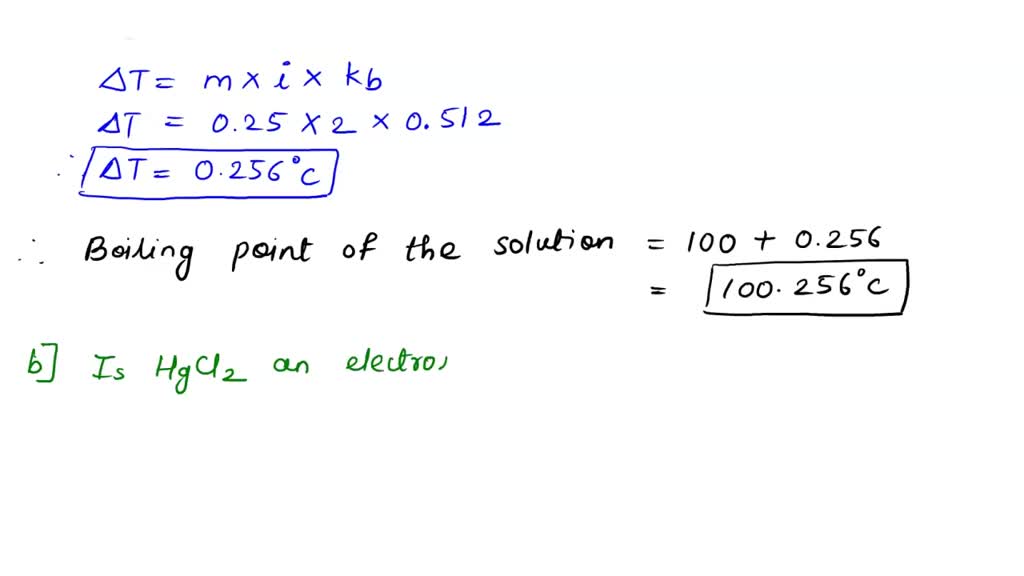 ΔT = m × i × kb
ΔT = 0.25 × 2 × 0.512
∴ ΔT = 0.256°C
∴ Boiling point of the solution = 100 + 0.256
= 100.256°C
b] Is HgCl2 an electro